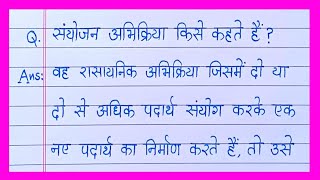 Q. संयोजन अभिक्रिया किसे कहते हैं ?
Ans: वह रासायनिक अभिक्रिया जिसमें दो या
दो से अधिक पदार्थ संयोग करके एक
नए पदार्थ का निर्माण करते हैं, तो उसे